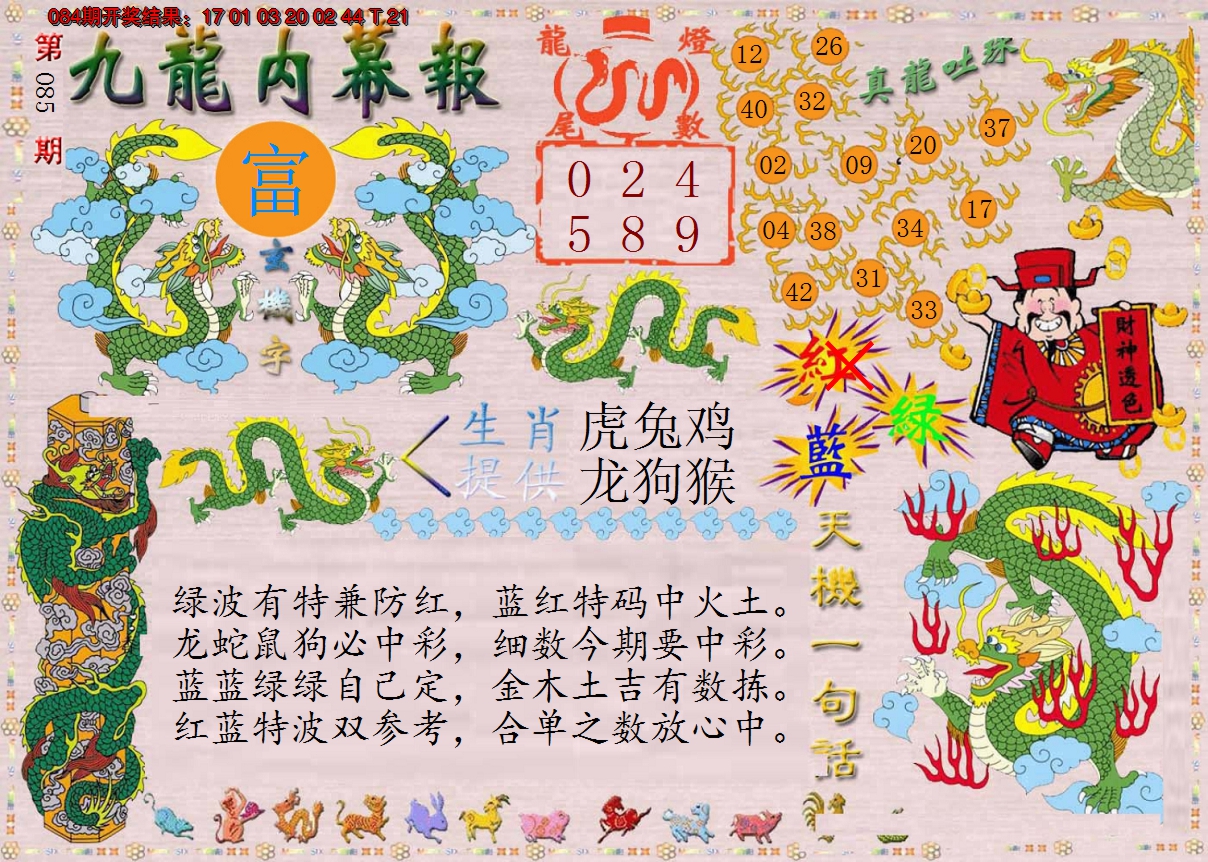 084期开奖结果：17 01 03 20 02 44 T 21
第085期
九龍内幕報
富
玄機字
龍燈
尾數
0 2 4
5 8 9
真龍吐珠
12 26
40 32
37
20
02 09
17
04 38 34
31
42 33
財神透色
紅
绿
藍
生肖
提供
虎兔鸡
龙狗猴
天機一句話
绿波有特兼防红，蓝红特码中火土。
龙蛇鼠狗必中彩，细数今期要中彩。
蓝蓝绿绿自己定，金木土吉有数拣。
红蓝特波双参考，合单之数放心中。